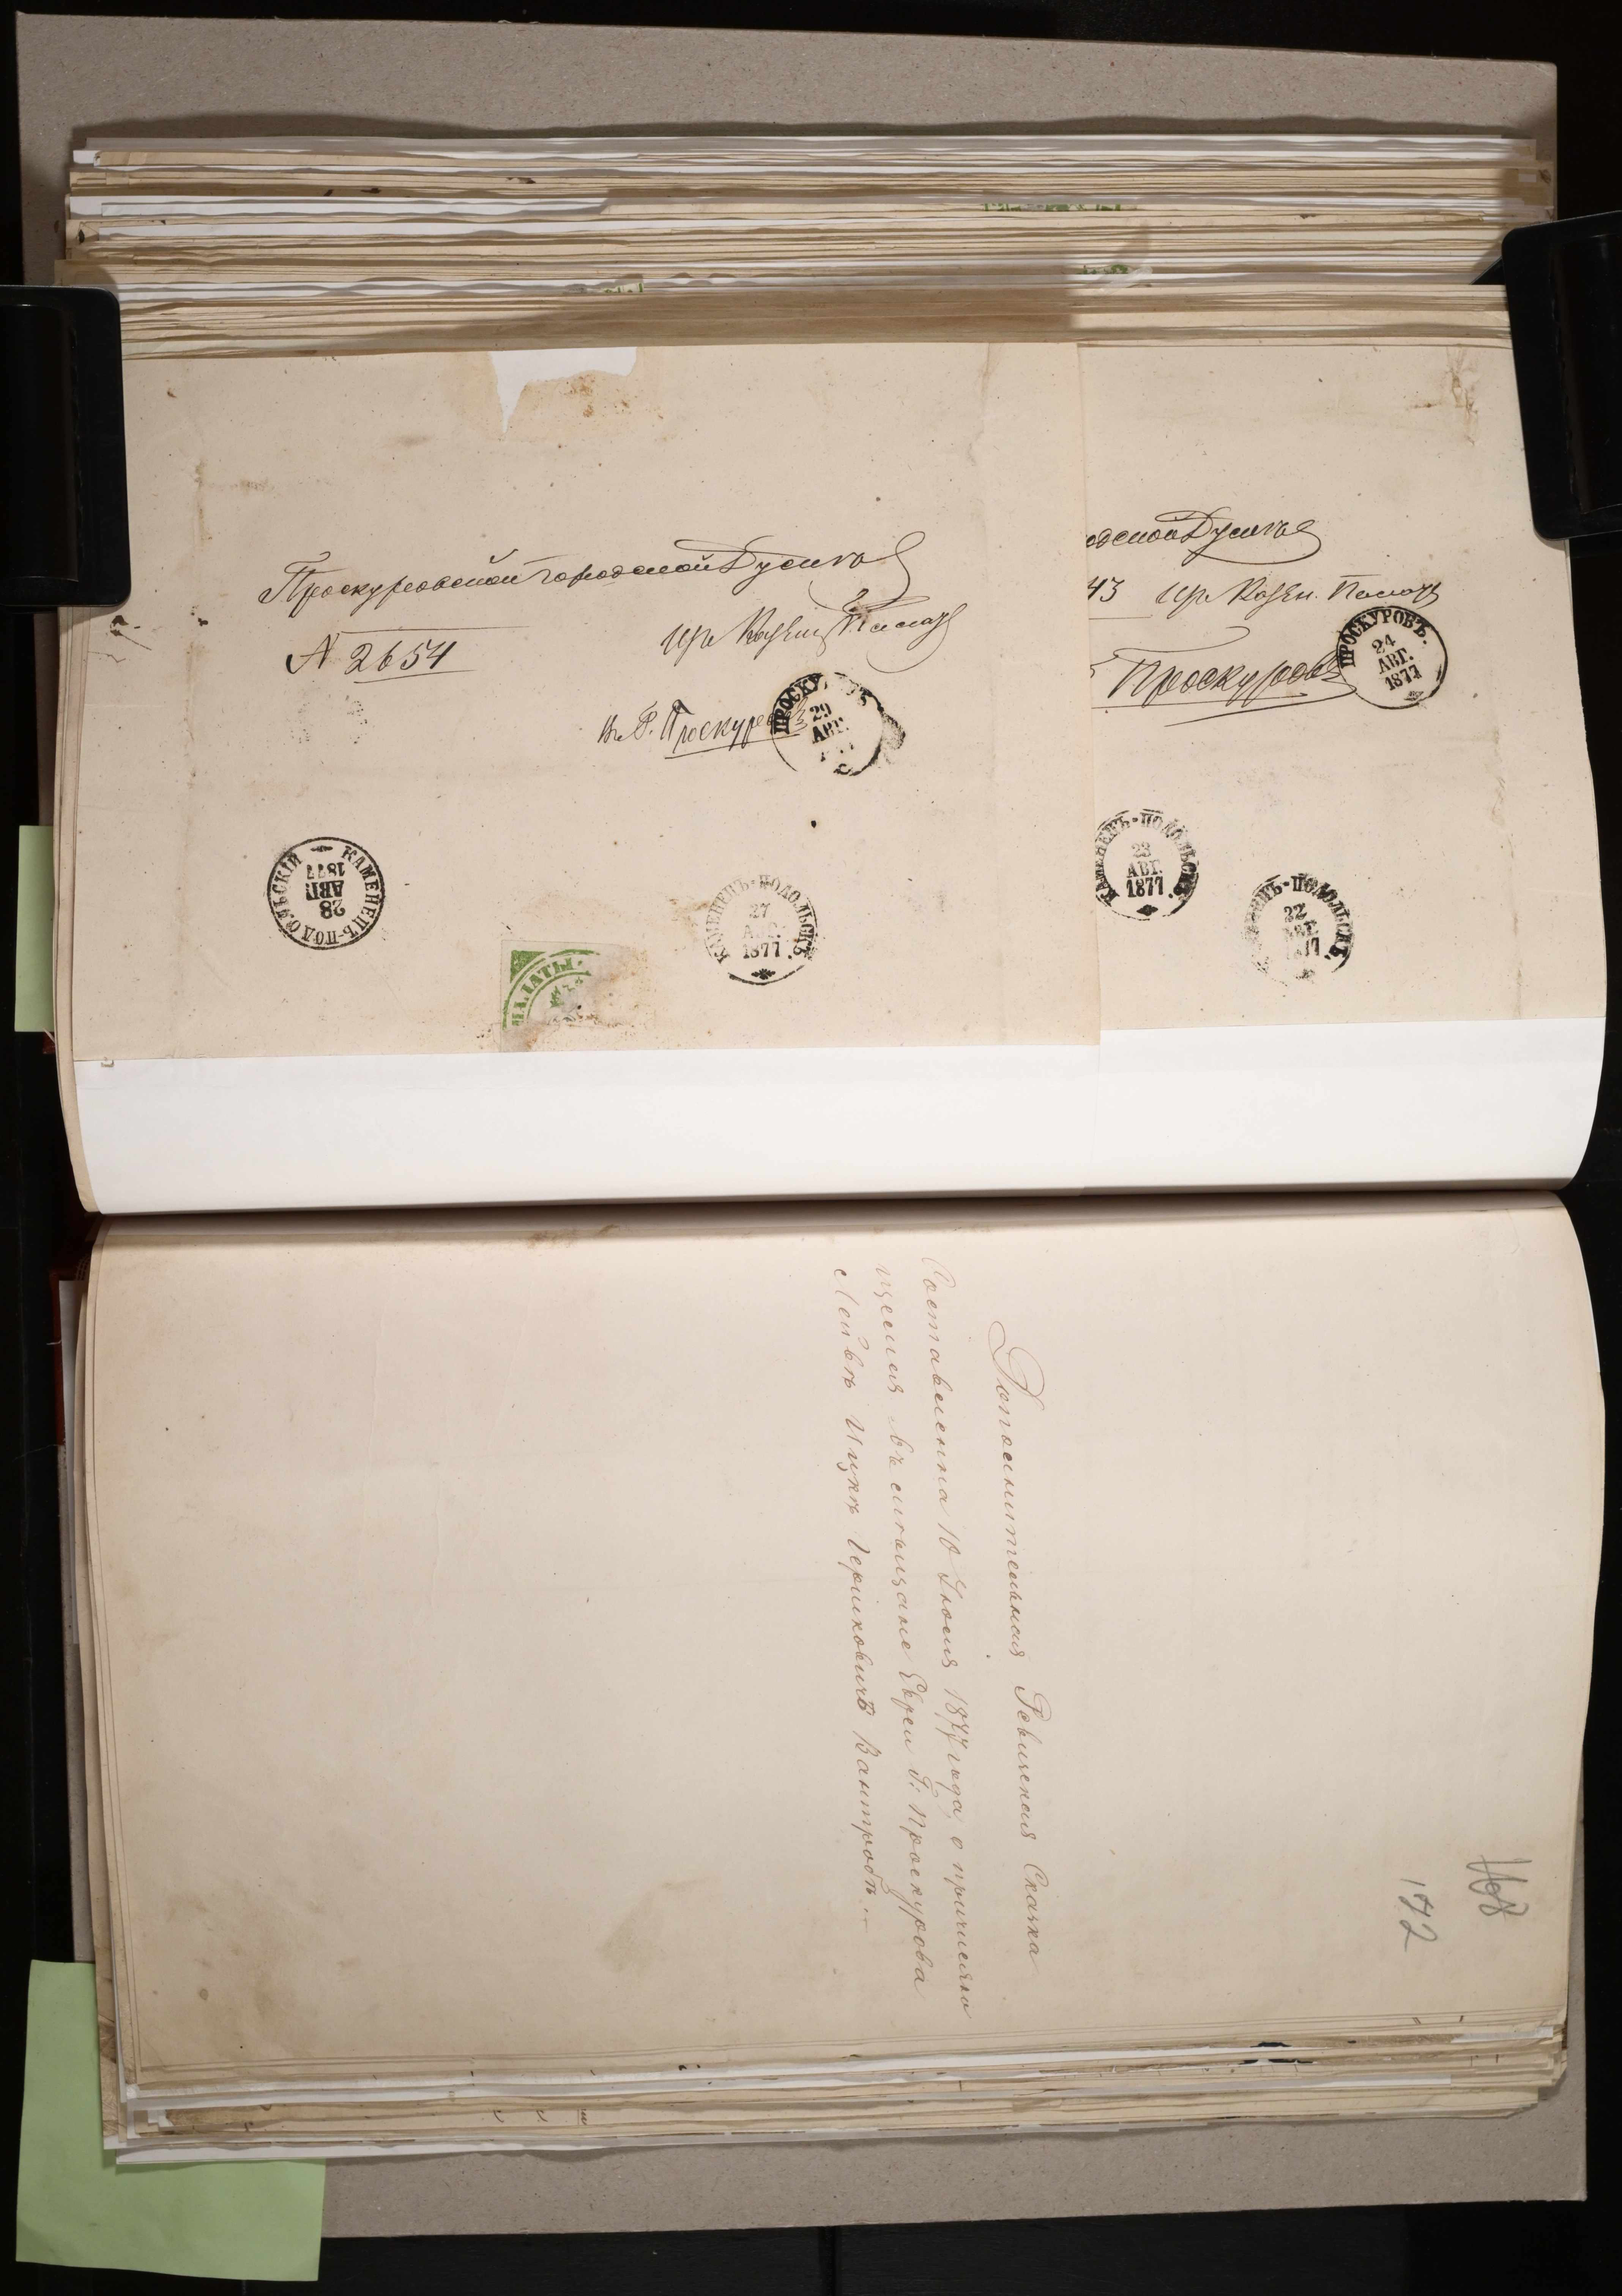 Проскуровской Городской Думѣ
N 2654
изъ Казен. Палаты
въ Г. Проскуровъ
ПРОСКУРОВЪ
29
АВГ.
КАМЕНЕЦЪ-ПОДОЛЬСКІЙ
28
АВГ.
1877
КАМЕНЕЦЪ-ПОДОЛЬСКЪ.
27
АВГ.
1877
ПАЛАТЫ.
одской Думѣ
43 изъ Казен. Палаты
Проскуровъ
ПРОСКУРОВЪ.
24
АВГ.
1877
КАМЕНЕЦЪ-ПОДОЛЬСКЪ.
23
АВГ.
1877
КАМЕНЕЦЪ-ПОДОЛЬСКЪ.
22
АВГ.
1877
168
172
Дополнительная Ревизская Сказка
Составленна 10 Іюля 1877 года, о причислив
щемся въ мѣщане Евреи Г: Проскурова
Лейбѣ Ицкѣ Гершковичѣ Вантробѣ